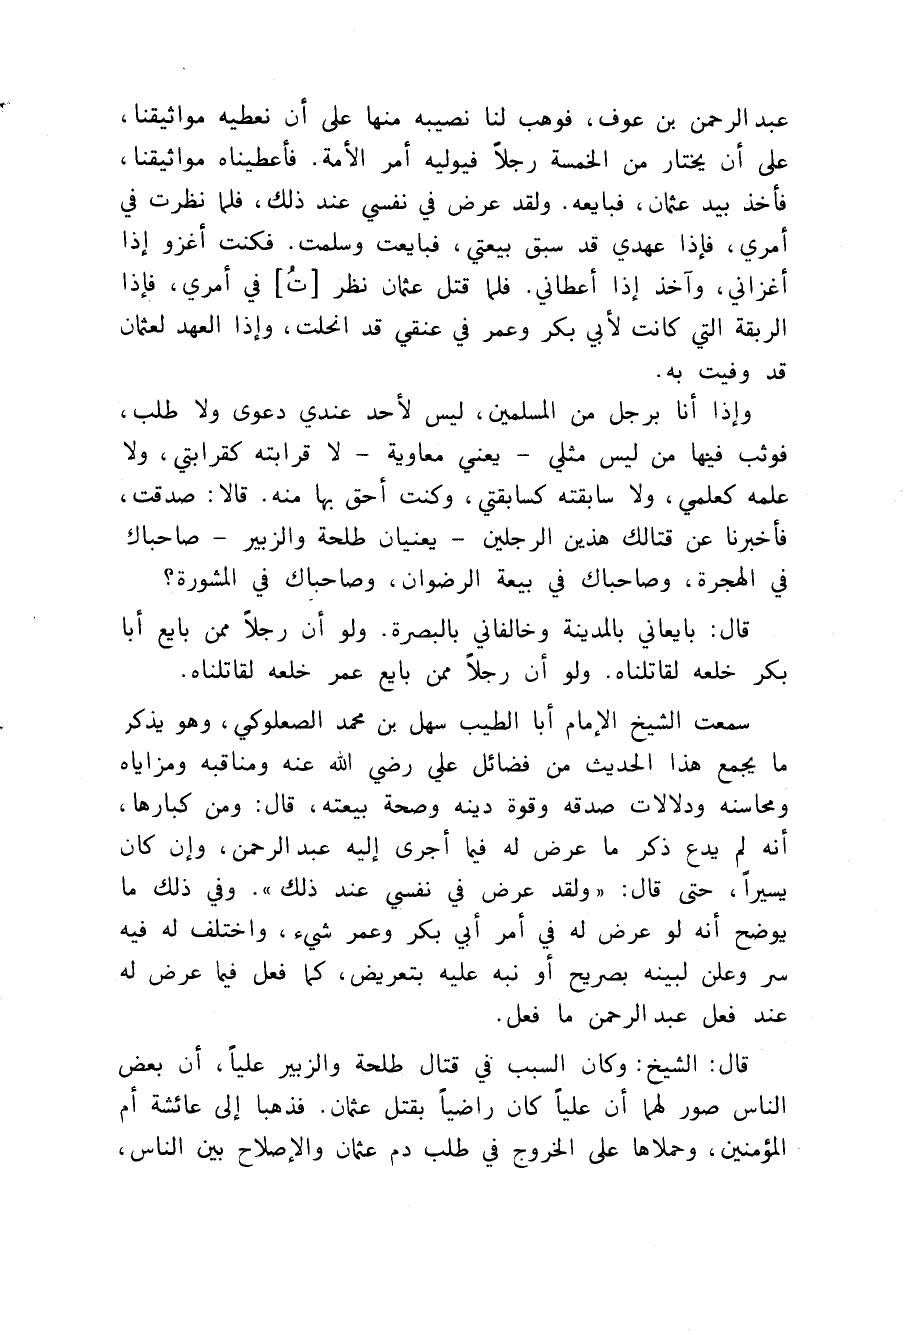 عبد الرحمن بن عوف، فوهب لنا نصيبه منها على أن نعطيه مواثيقنا،
على أن يختار من الخمسة رجلاً فيوليه أمر الأمة. فأعطيناه مواثيقنا،
فأخذ بيد عثمان، فبايعه. ولقد عرض في نفسي عند ذلك، فلما نظرت في
أمري، فإذا عهدي قد سبق بيعتي، فبايعت وسلمت. فكنت أغزو إذا
أغزاني، وآخذ إذا أعطاني. فلما قتل عثمان نظر [تُ] في أمري، فإذا
الربقة التي كانت لأبي بكر وعمر في عنقي قد انحلت، وإذا العهد لعثمان
قد وفيت به.
وإذا أنا برجل من المسلمين، ليس لأحد عندي دعوى ولا طلب،
فوثب فيها من ليس مثلي – يعني معاوية – لا قرابته كقرابتي، ولا
علمه كعلمي، ولا سابقته كسابقتي، وكنت أحق بها منه. قالا: صدقت،
فأخبرنا عن قتالك هذين الرجلين – يعنيان طلحة والزبير – صاحباك
في الهجرة، وصاحباك في بيعة الرضوان، وصاحباك في المشورة؟
قال: بايعاني بالمدينة وخالفاني بالبصرة. ولو أن رجلاً ممن بايع أبا
بكر خلعه لقاتلناه. ولو أن رجلاً ممن بايع عمر خلعه لقاتلناه.
سمعت الشيخ الإمام أبا الطيب سهل بن محمد الصعلوكي، وهو يذكر
ما يجمع هذا الحديث من فضائل علي رضي الله عنه ومناقبه ومزاياه
ومحاسنه ودلالات صدقه وقوة دينه وصحة بيعته، قال: ومن كبارها،
أنه لم يدع ذكر ما عرض له فيما أجرى إليه عبد الرحمن، وإن كان
يسيراً، حتى قال: «ولقد عرض في نفسي عند ذلك». وفي ذلك ما
يوضح أنه لو عرض له في أمر أبي بكر وعمر شيء، واختلف له فيه
سر وعلن لبينه بصريح أو نبه عليه بتعريض، كما فعل فيما عرض له
عند فعل عبد الرحمن ما فعل.
قال: الشيخ: وكان السبب في قتال طلحة والزبير علياً، أن بعض
الناس صور لهما أن علياً كان راضياً بقتل عثمان. فذهبا إلى عائشة أم
المؤمنين، وحملاها على الخروج في طلب دم عثمان والإصلاح بين الناس،